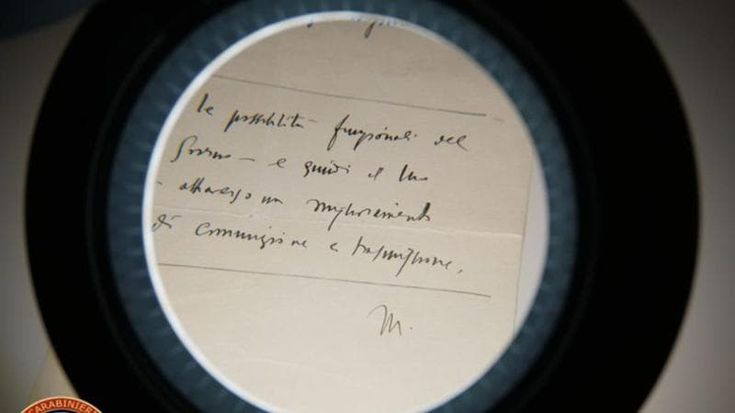 le possibilità funzionali del
Governo – e quindi il suo
– attraverso un miglioramento
di comunicazione e trasmissione.
M.
CARABINIERI